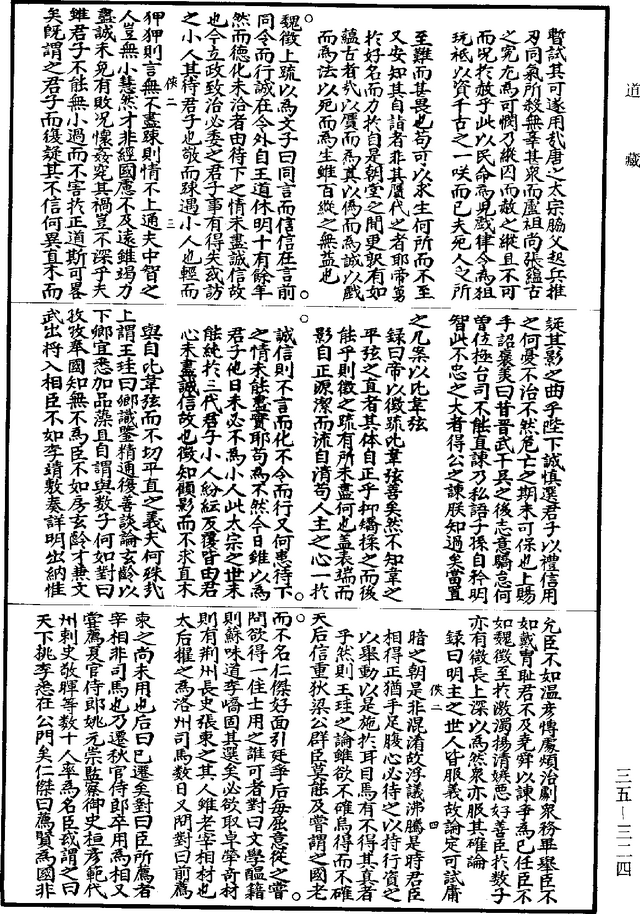 道藏
暫試其可遂用哉唐之太宗脇父起兵推
刃同氣所殺無辜甚衆而盧祖尚張蘊古
之寃尤爲可憫乃縱囚而赦之縱且不可
而況於赦乎此以民命爲兒戲律令爲狙
玩祇以資千古之一咲而已夫死人之所
至難而甚畏也苟可以求生何所而不至
又安知其自詣者非其贗代之者耶帝篤
於好名而力於自是朝堂之間更孰有如
蘊古者哉以價而爲真以僞而爲誠以戲
而爲法以死而爲生雖百縱之無益也
魏徵上疏以爲文子曰同言而信信在言前
同令而行誠在令外自王道休明十有餘年
然而德化未洽者由待下之情未盡誠信故
也今立政致治必委之君子事有得失或訪
之小人其待君子也敬而踈遇小人也輕而
俠二 三
狎狎則言無不盡踈則情不上通夫中智之
人豈無小慧然才非經國慮不及遠雖竭力
盡誠未免有敗况懷姦宄其禍豈不深乎夫
雖君子不能無小過而不害於正道斯可畧
矣既謂之君子而復疑其不信何異直木而
疑其影之曲乎陛下誠慎選君子以禮信用
之何憂不治不然危亡之期未可保也上賜
手詔褒美曰昔晋武平吳之後志意驕怠何
曾位極台司不能直諫乃私語子孫自矜明
智此不忠之大者得公之諫朕知過矣當置
之几案以比韋弦
録曰帝以徵疏比韋弦善矣然不知韋之
平弦之直者其体自正乎抑矯揉之而後
能乎則徵之疏有所未盡何也盖表端而
影自正源潔而流自清苟人主之心一於
誠信則不言而化不令而行又何患待下
之情未能悉實耶苟爲不然今日雖以爲
君子他日未必不爲小人此太宗之世未
能純於三代君子小人紛紜反覆皆由君
心未盡誠信故也徵知傾影而不求直木
與自比韋弦而不切平直之義夫何殊哉
上謂王珪曰卿識鑒精通復善談論玄齡以
下卿宜悉加品藻且自謂與數子何如對曰
孜孜奉國知無不爲臣不如房玄齡才兼文
武出將入相臣不如李靖敷奏詳明出納惟
允臣不如温彦愽處煩治劇衆務平舉臣不
如戴冑耻君不及堯舜以諫爭爲己任臣不
如魏徵至於激濁揚清嫉惡好善臣於數子
亦有微長上深以爲然衆亦服其確論
録曰明主之世人皆服義故論定可試庸
俠二 四
暗之朝是非混淆故浮議沸騰是時君臣
相得正猶手足腹心必待之以持行資之
以舉動以是施於耳目焉有不得其真者
乎然則王珪之論雖欲不確烏得而不確
天后信重狄梁公群臣莫能及嘗謂之國老
而不名仁傑好面引廷爭后每屈意從之嘗
問欲得一佳士用之誰可者對曰文學醞籍
則蘇味道李嶠固其選矣必欲取卓犖奇材
則有荆州長史張柬之其人雖老宰相材也
太后擢之爲洛州司馬數日又問對曰前薦
柬之尚未用也后曰已遷矣對曰臣所薦者
宰相非司馬也乃遷秋官侍郎卒用爲相又
嘗薦夏官侍郎姚元崇監察御史桓彦範代
州刺史敬暉等數十人率爲名臣或謂之曰
天下桃李悉在公門矣仁傑曰薦賢爲國非
三五—三二四